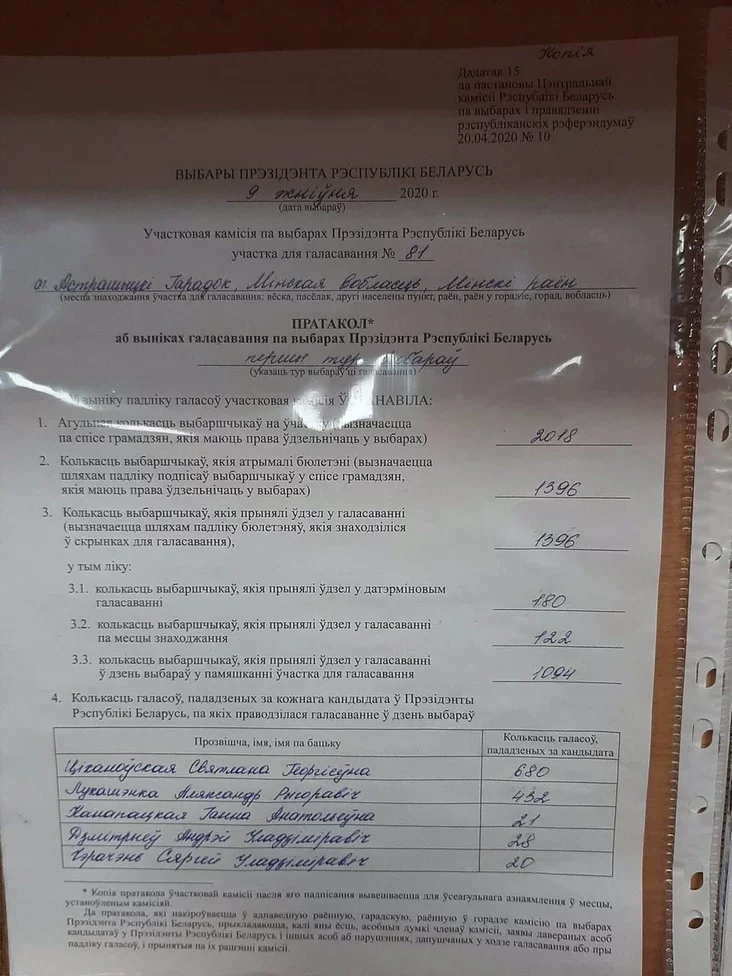 Копія
Дадатак 15
да пастановы Цэнтральнай
камісіі Рэспублікі Беларусь
па выбарах і правядзенні
рэспубліканскіх рэферэндумаў
20.04.2020 № 10
ВЫБАРЫ ПРЭЗІДЭНТА РЭСПУБЛІКІ БЕЛАРУСЬ
9 жніўня 2020 г.
(дата выбараў)
Участковая камісія па выбарах Прэзідэнта Рэспублікі Беларусь
участка для галасавання № 81
аг. Астрашыцкі Гарадок, Мінская вобласць, Мінскі раён
(месца знаходжання ўчастка для галасавання: вёска, пасёлак, другі населены пункт, раён, раён у горадзе, горад, вобласць)
ПРАТАКОЛ*
аб выніках галасавання па выбарах Прэзідэнта Рэспублікі Беларусь
першы тур выбараў
(указаць тур выбараў ці галасавання)
У выніку падліку галасоў участковая камісія ЎСТАНАВІЛА:
1. Агульная колькасць выбаршчыкаў на ўчастку (вызначаецца
па спісе грамадзян, якія маюць права ўдзельнічаць у выбарах) 2018
2. Колькасць выбаршчыкаў, якія атрымалі бюлетэні (вызначаецца
шляхам падліку подпісаў выбаршчыкаў у спісе грамадзян,
якія маюць права ўдзельнічаць у выбарах) 1396
3. Колькасць выбаршчыкаў, якія прынялі ўдзел у галасаванні
(вызначаецца шляхам падліку бюлетэняў, якія знаходзіліся
ў скрынках для галасавання), 1396
у тым ліку:
3.1. колькасць выбаршчыкаў, якія прынялі ўдзел у датэрміновым
галасаванні 180
3.2. колькасць выбаршчыкаў, якія прынялі ўдзел у галасаванні
па месцы знаходжання 122
3.3. колькасць выбаршчыкаў, якія прынялі ўдзел у галасаванні
ў дзень выбараў у памяшканні ўчастка для галасавання 1094
4. Колькасць галасоў, пададзеных за кожнага кандыдата ў Прэзідэнты
Рэспублікі Беларусь, па якіх праводзілася галасаванне ў дзень выбараў
Прозвішча, імя, імя па бацьку Колькасць галасоў,
пададзеных за кандыдата
Ціханоўская Святлана Георгіеўна 680
Лукашэнка Аляксандр Рыгоравіч 432
Канапацкая Ганна Анатольеўна 21
Дзмітрыеў Андрэй Уладзіміравіч 28
Чэрачэнь Сяргей Уладзіміравіч 20
* Копія пратакола ўчастковай камісіі пасля яго падпісання вывешваецца для ўсеагульнага азнаямлення ў месцы,
устаноўленым камісіяй.
Да пратакола, які накіроўваецца ў адпаведную раённую, гарадскую, раённую ў горадзе камісію па выбарах
Прэзідэнта Рэспублікі Беларусь, прыкладаюцца, калі яны ёсць, асобныя думкі членаў камісіі, заявы давераных асоб
кандыдатаў у Прэзідэнты Рэспублікі Беларусь і іншых асоб аб парушэннях, дапушчаных у ходзе галасавання або пры
падліку галасоў, і прынятыя па іх рашэнні камісіі.